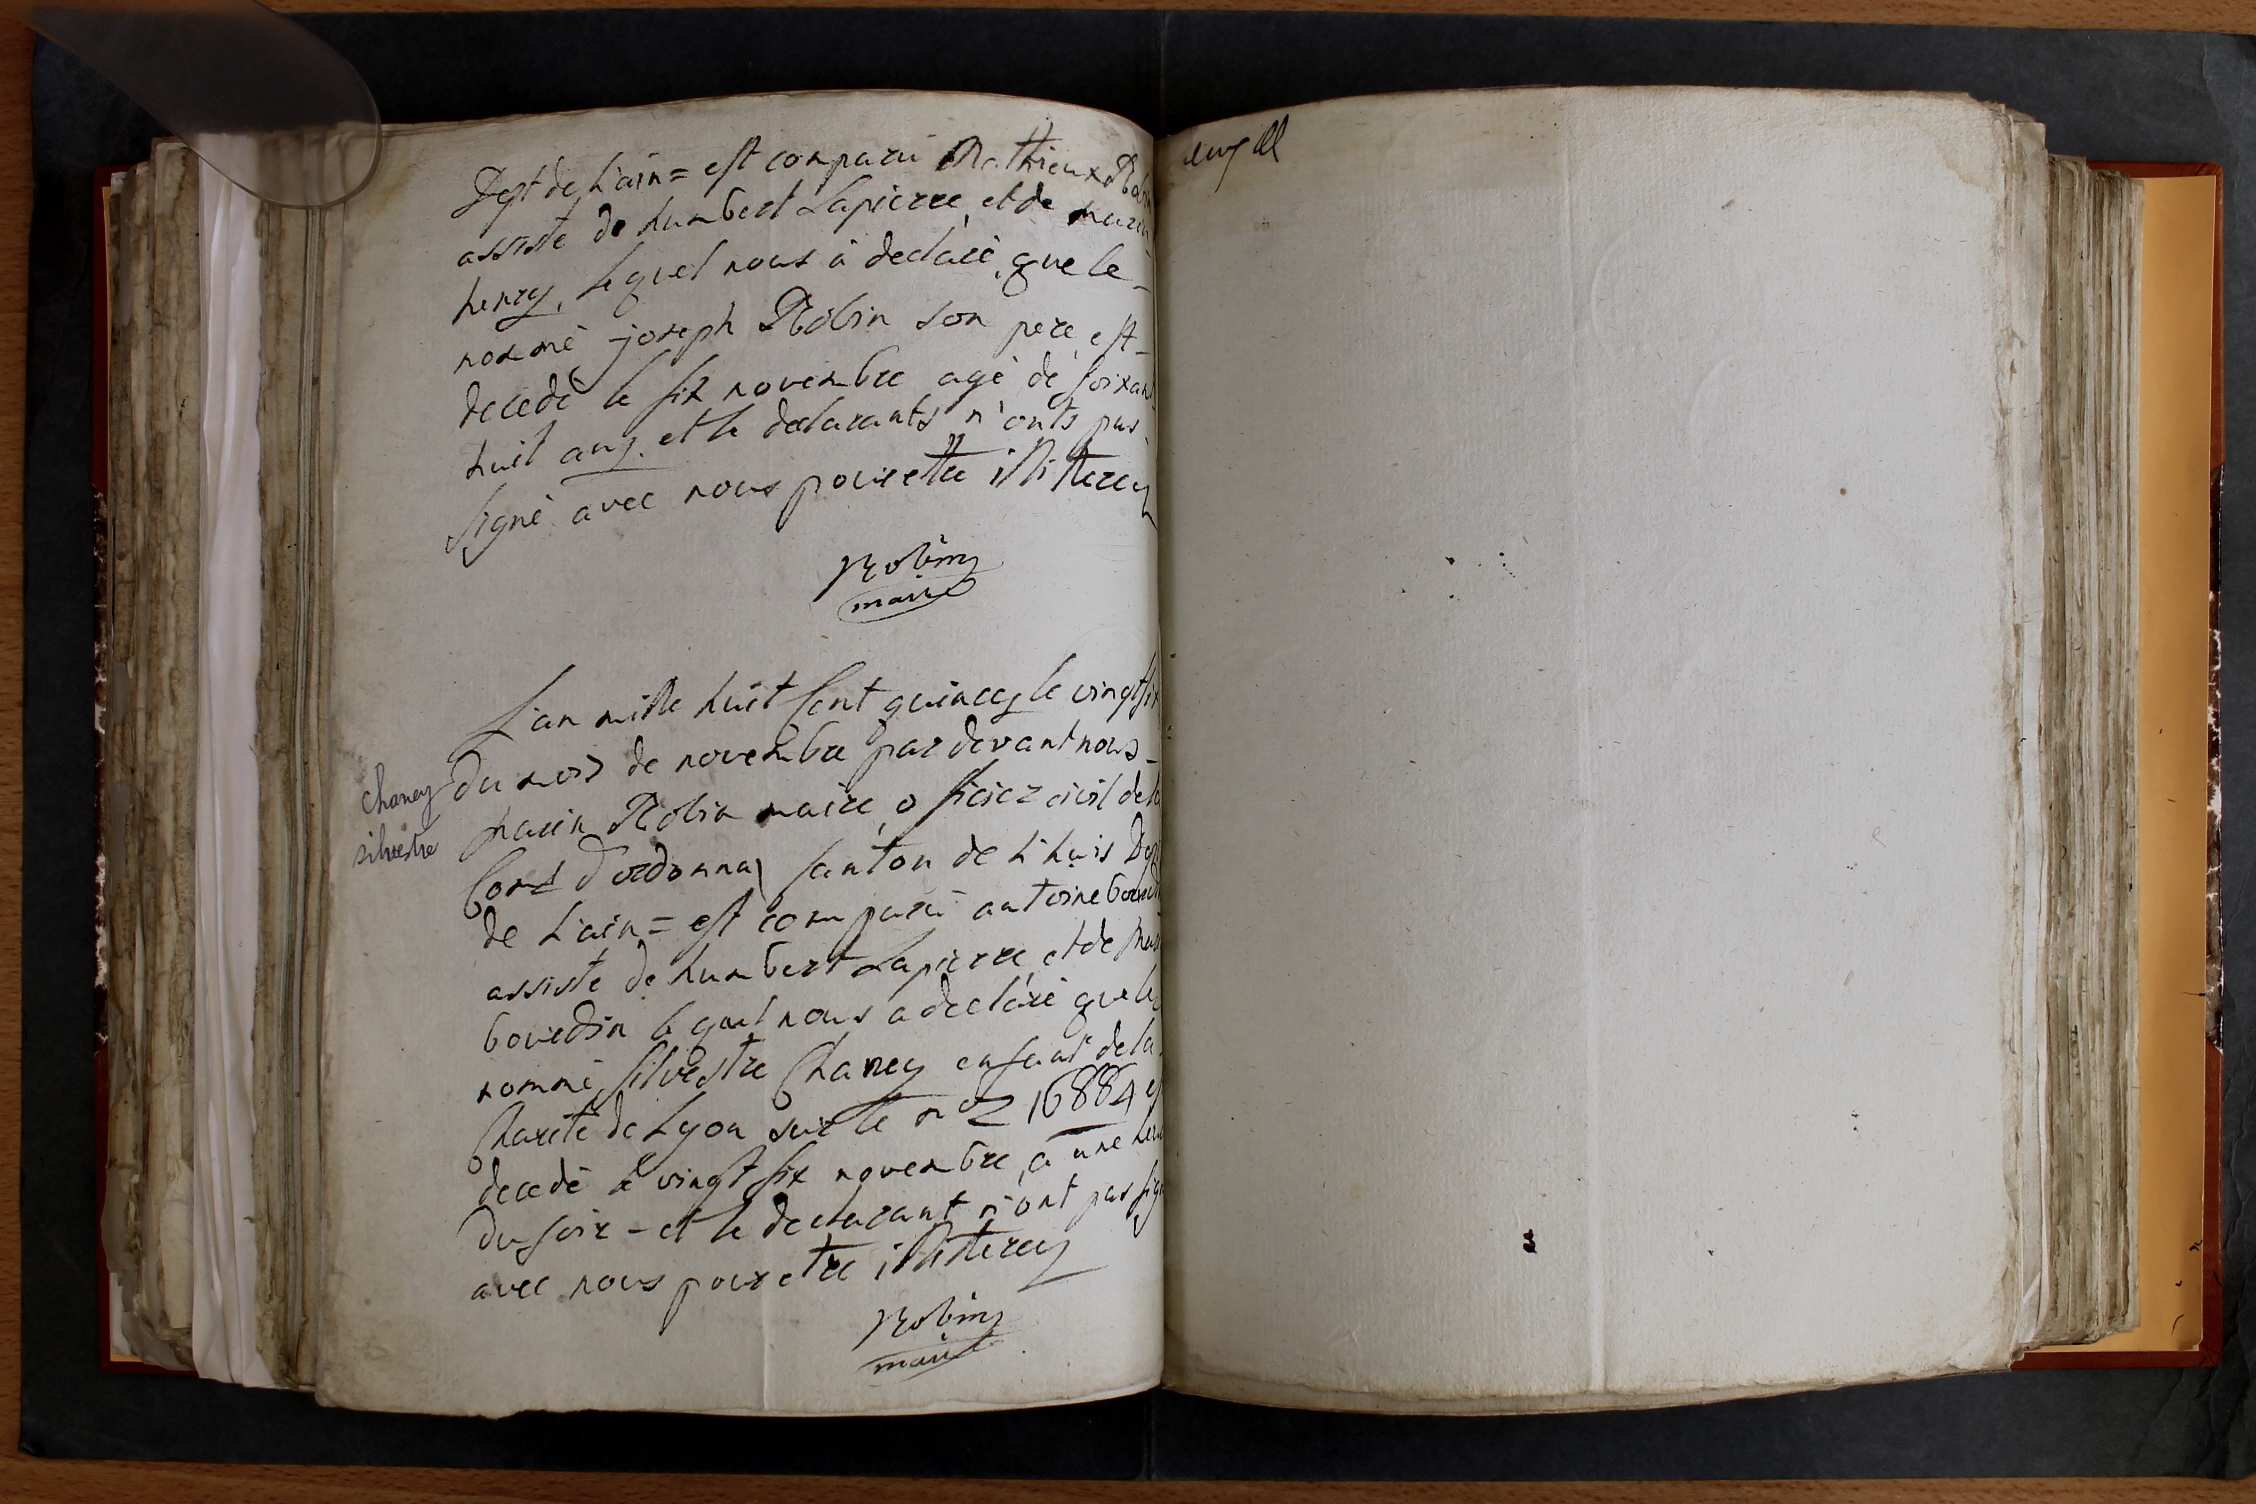 Dept de L'ain = est comparu Mathieux Robin
assisté de humbert Lapierre, et de marin
henry, lequel nous à declaré, que le
nommé joseph Robin son pere, est
decedé le six novembre agé de soixant
huit ans. et le declarants n'onts pas
signé avec nous pour ettre illitterey
Robin
maire
L'an mille huit Cent quincey le vingt six
du mois de novembre par devant nous
marin Robin maire, officiez civil de la
Com d'ordonnaz Canton de L'huis Dept
de L'ain = est comparu antoine bourdin
assisté de humbert Lapierre, et de
bourdin le quel nous a declaré que le
nommé Silvestre Chaney enfant de la
Charité de Lyon sur le n° 16884 est
decedé le vingt six novembre, a une heure
du soir - et le declarant n'ont pas signé
avec nous pour etre illitterey
Robin
maire
chaney
silvestre